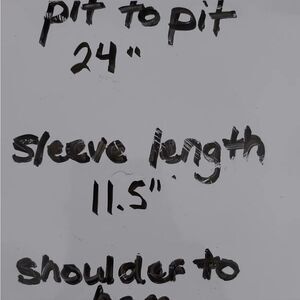 pit to pit
24"
sleeve length
11.5"
shoulder to